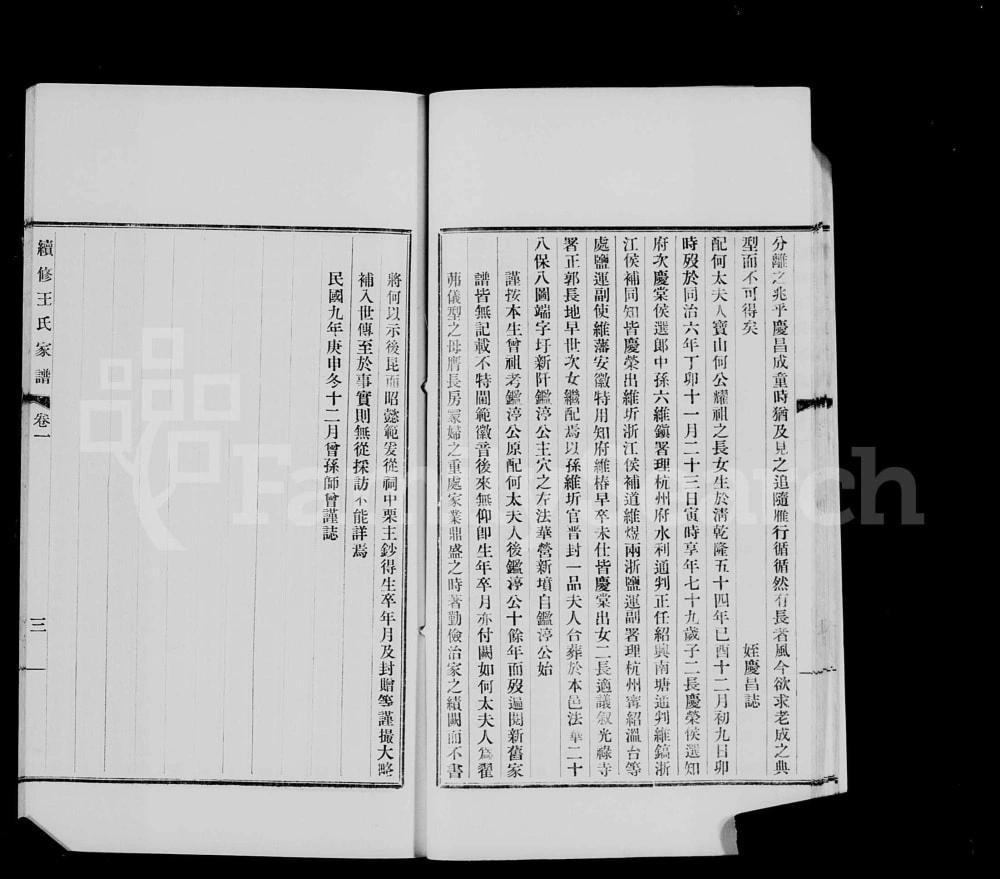 分離之兆乎慶昌成童時猶及見之追隨雁行循循然有長者風今欲求老成之典
型而不可得矣
姪慶昌誌
配何太夫人寶山何公耀祖之長女生於清乾隆五十四年己酉十二月初九日卯
時歿於同治六年丁卯十一月二十三日寅時享年七十九歲子二長慶榮候選知
府次慶棠候選郎中孫六維鎭署理杭州府水利通判正任紹興南塘通判維鎬浙
江候補同知皆慶榮出維圻浙江候補道維煜兩浙鹽運副署理杭州甯紹溫台等
處鹽運副使維藩安徽特用知府維椿早卒未仕皆慶棠出女二長適議敘光祿寺
署正郭長地早世次女繼配焉以孫維圻官晋封一品夫人合葬於本邑法華二十
八保八圖端字圩新阡鑑渟公主穴之左法華營新墳自鑑渟公始
謹按本生曾祖考鑑渟公原配何太夫人後鑑渟公十餘年而歿遍閱新舊家
譜皆無記載不特閫範徽音後來無仰卽生年卒月亦付闕如何太夫人爲翟
茀儀型之母膺長房冢婦之重處家業鼎盛之時著勤儉治家之績闕而不書
將何以示後昆而昭懿範爰從祠中栗主鈔得生卒年月及封贈等謹撮大略
補入世傳至於事實則無從採訪不能詳焉
民國九年庚申冬十二月曾孫師曾謹誌
續修王氏家譜 卷一 三
FamilySearch